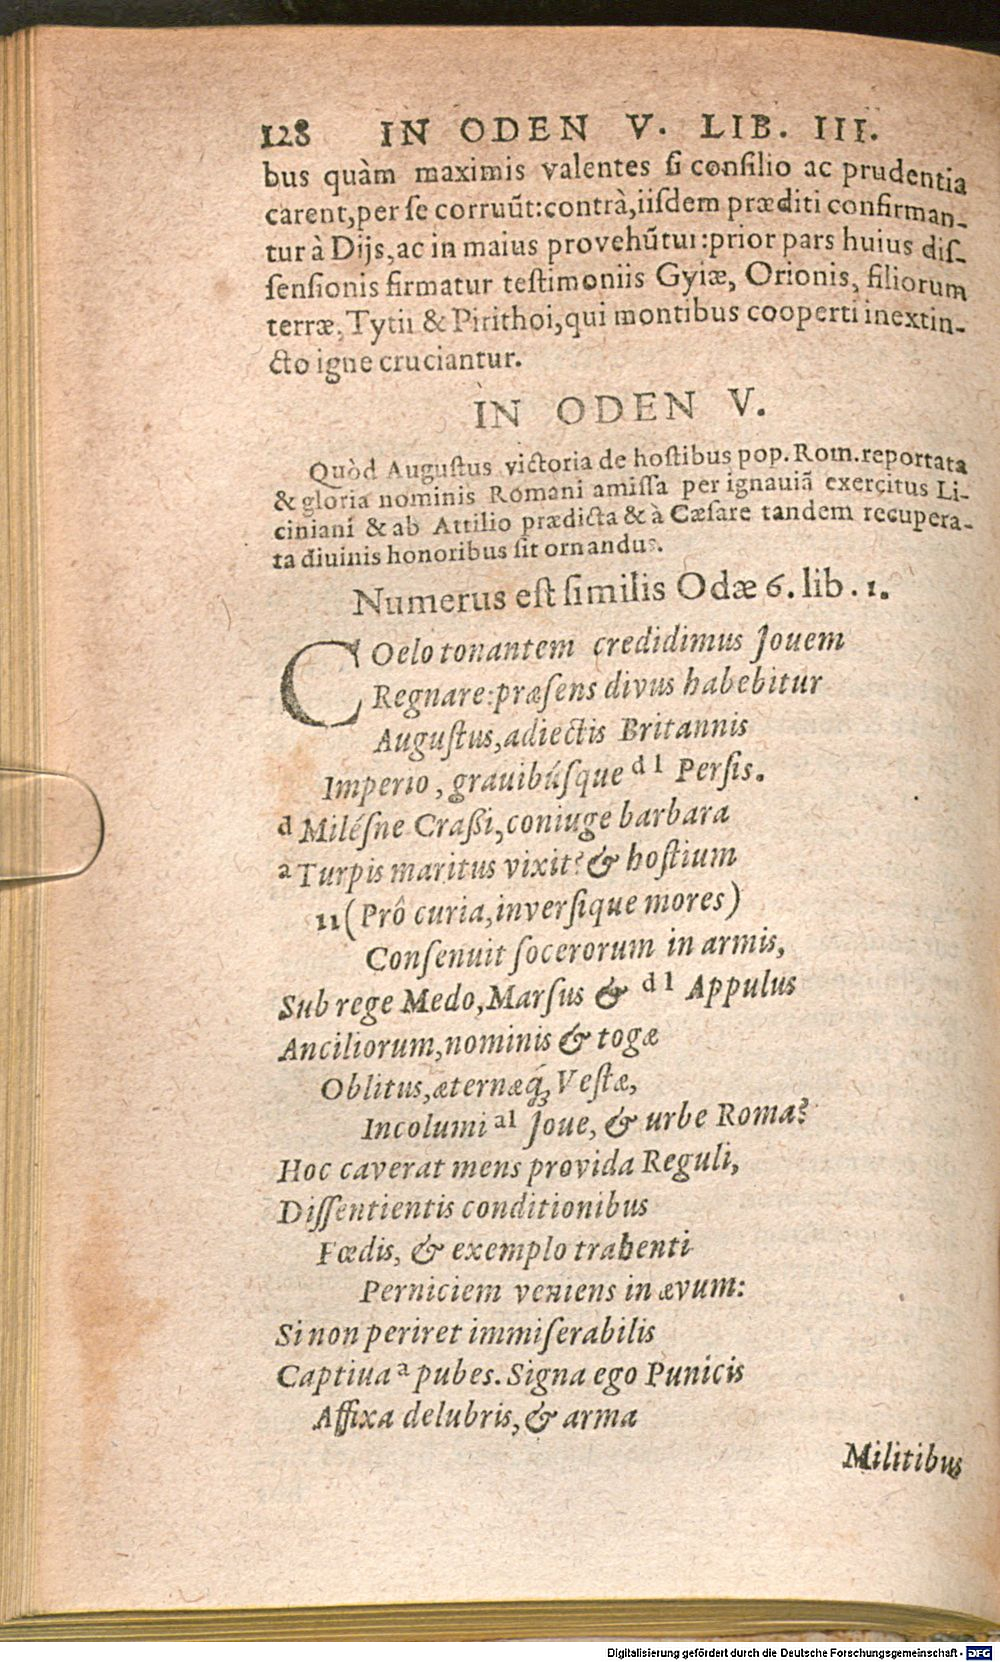 128 IN ODEN V. LIB. III.
bus quàm maximis valentes si consilio ac prudentia
carent, per se corruũt: contrà, iisdem præditi confirman-
tur à Dijs, ac in maius provehũtur: prior pars huius dis-
sensionis firmatur testimoniis Gyiæ, Orionis, filiorum
terræ, Tytii & Pirithoi, qui montibus cooperti inextin-
cto igne cruciantur.
IN ODEN V.
Quòd Augustus victoria de hostibus pop. Rom. reportata
& gloria nominis Romani amissa per ignauiã exercitus Li-
ciniani & ab Attilio prædicta & à Cæsare tandem recupera-
ta diuinis honoribus sit ornandus.
Numerus est similis Odæ 6. lib. 1.
COelo tonantem credidimus Jouem
Regnare: præsens divus habebitur
Augustus, adiectis Britannis
Imperio, grauibúsque d l Persis.
d Milésne Crassi, coniuge barbara
a Turpis maritus vixit? & hostium
11 (Prô curia, inversique mores)
Consenuit socerorum in armis,
Sub rege Medo, Marsus & d l Appulus
Anciliorum, nominis & togæ
Oblitus, æternæq́; Vestæ,
Incolumi al Joue, & urbe Roma?
Hoc caverat mens provida Reguli,
Dissentientis conditionibus
Fœdis, & exemplo trahenti
Perniciem veniens in ævum:
Si non periret immiserabilis
Captiua a pubes. Signa ego Punicis
Affixa delubris, & arma
Militibus
Digitalisierung gefördert durch die Deutsche Forschungsgemeinschaft - DFG